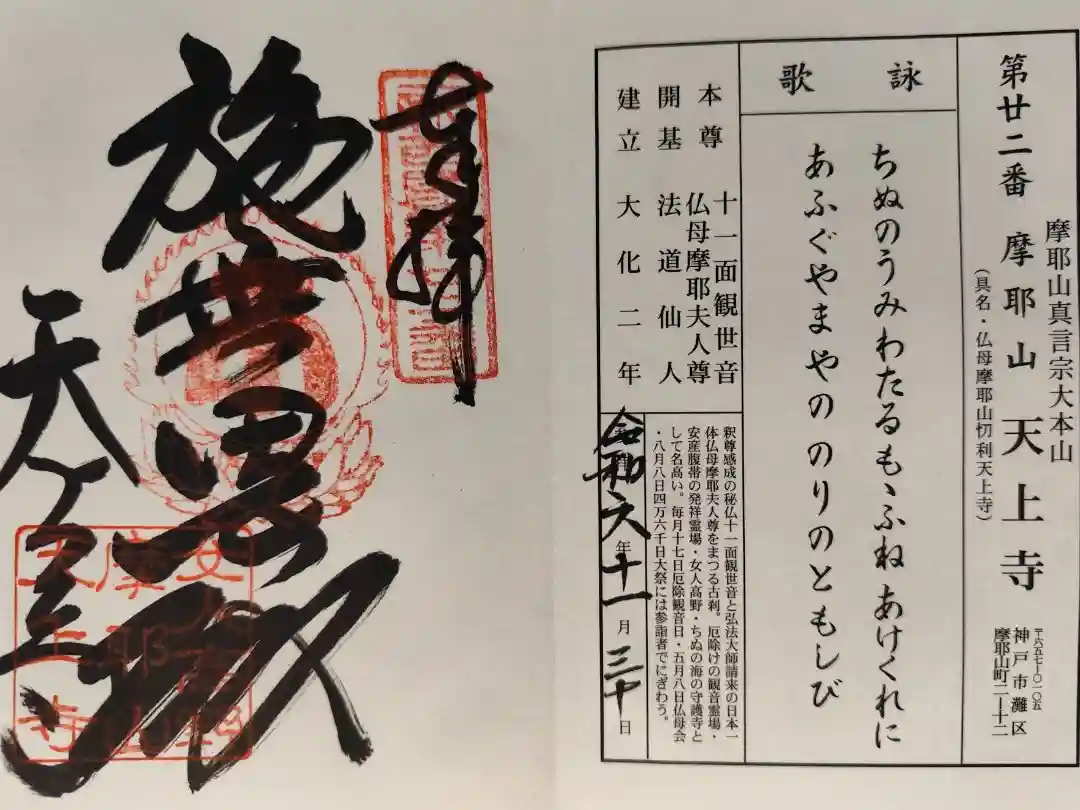 摩耶山真言宗大本山
第廿二番 摩耶山 天上寺
(具名・仏母摩耶山忉利天上寺)
〒六五七-〇一〇五
神戸市灘区
摩耶山町二-十二
詠歌
ちぬのうみわたるもゝふね あけくれに
あふぐやまやの のりのともしび
本尊 十一面観世音
仏母摩耶夫人尊
開基 法道仙人
建立 大化二年
釈尊感成の秘仏十一面観世音と弘法大師請来の日本一
体仏母摩耶夫人尊をまつる古刹。厄除けの観音霊場・
安産腹帯の発祥霊場・女人高野・ちぬの海の守護寺と
して名高い。毎月十七日厄除観音日・五月八日仏母会
・八月八日四万六千日大祭には参詣者でにぎわう。
令和六年十一月三十日
奉拝
施無畏殿
天上寺
摩耶山
天上寺